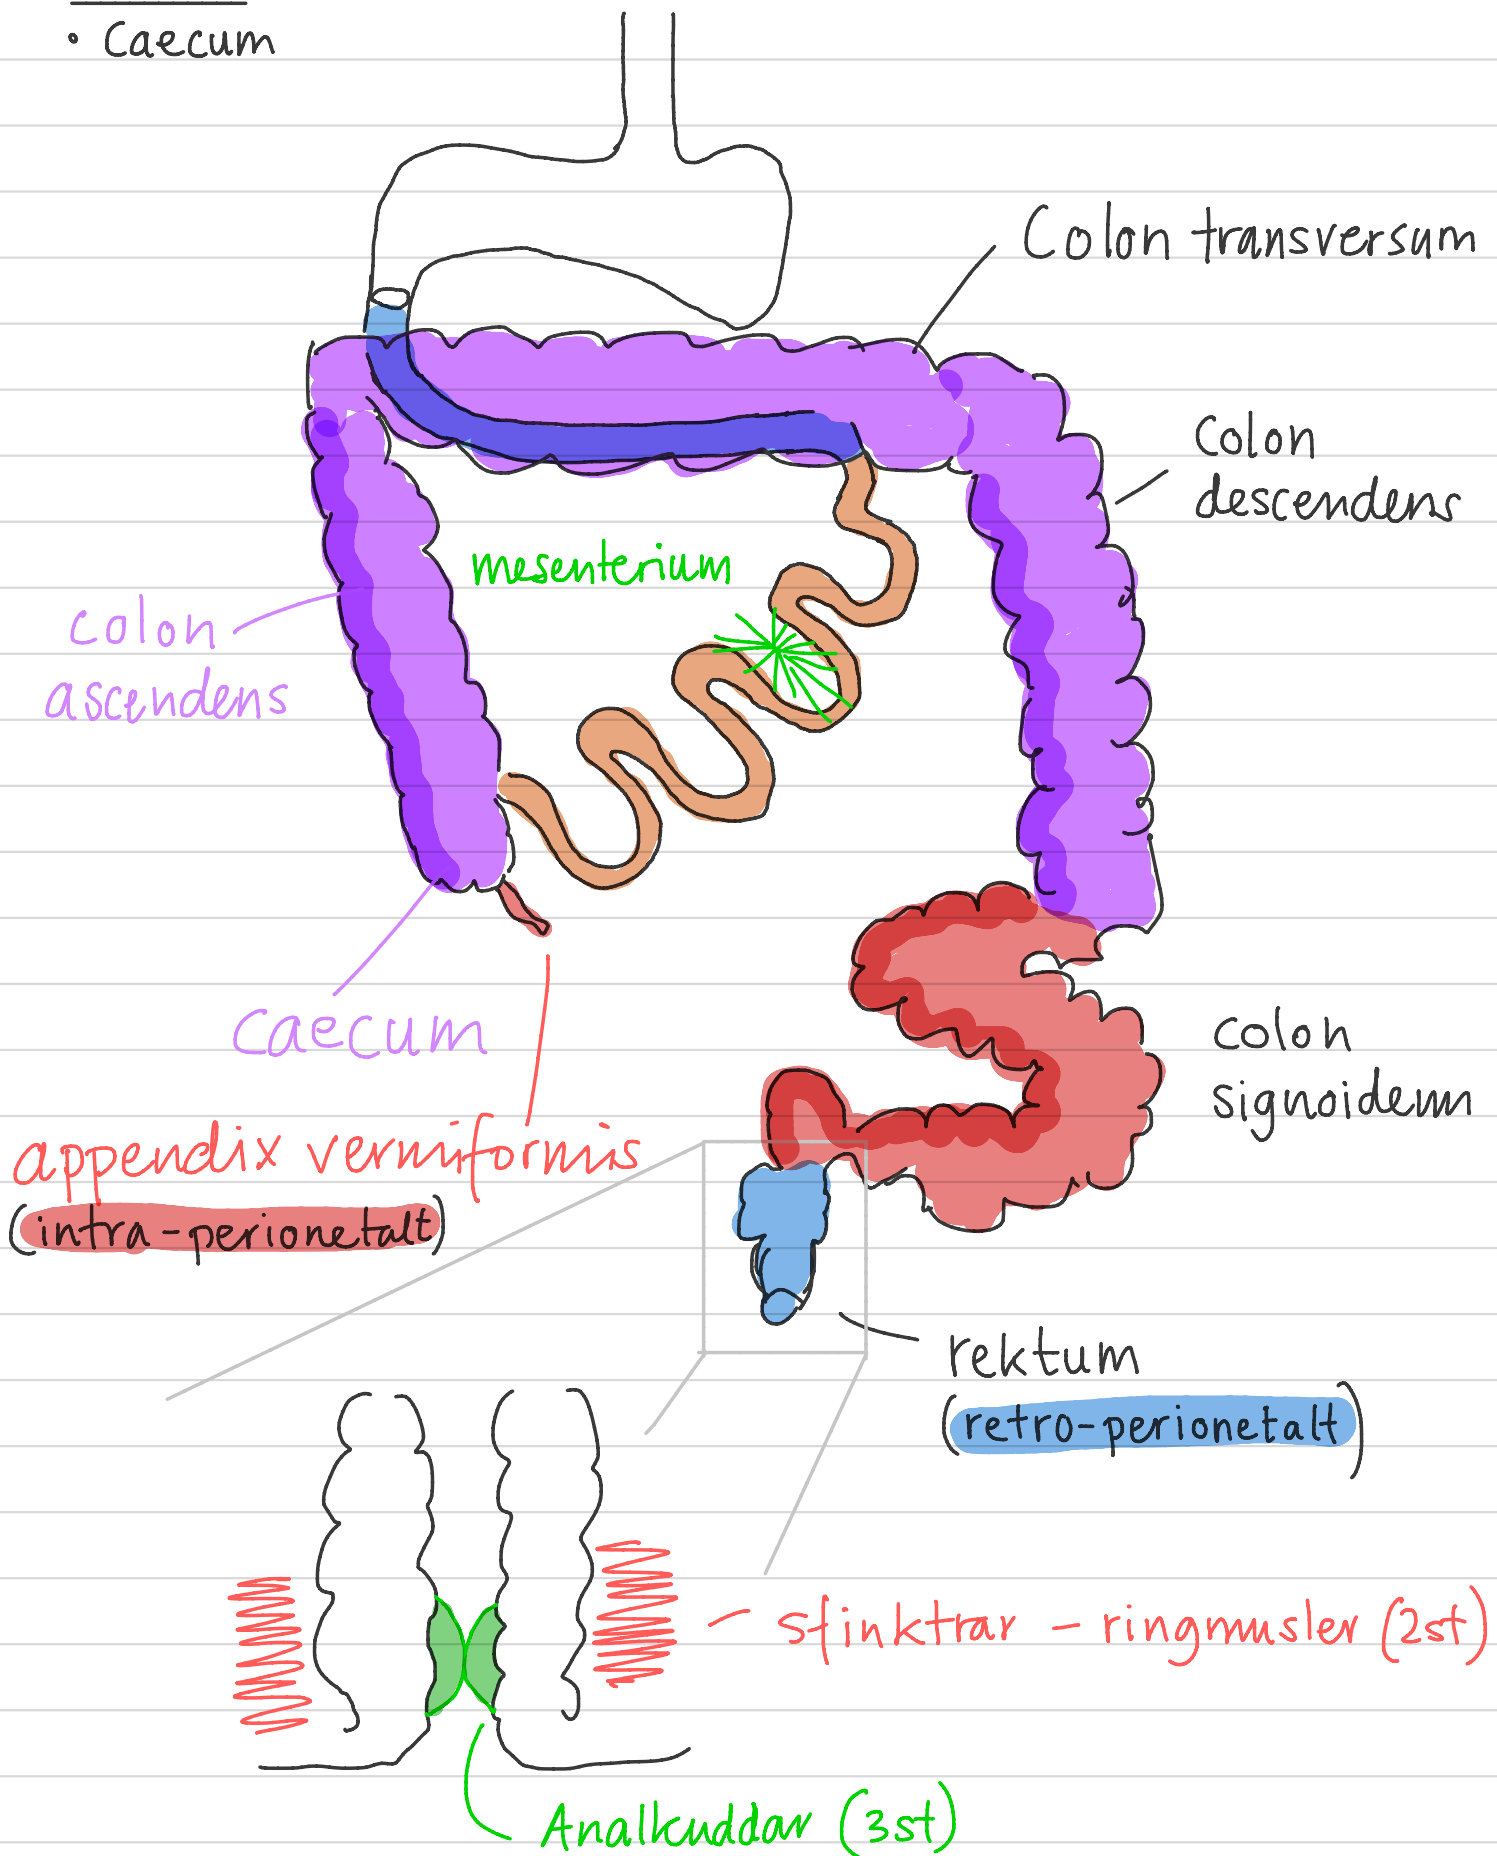 • Caecum
Colon transversum
Colon
descendens
mesenterium
colon
ascendens
caecum
colon
signoideum
appendix vermiformis
(intra-perionetalt)
rektum
(retro-perionetalt)
sfinktrar - ringmusler (2st)
Analkuddar (3st)